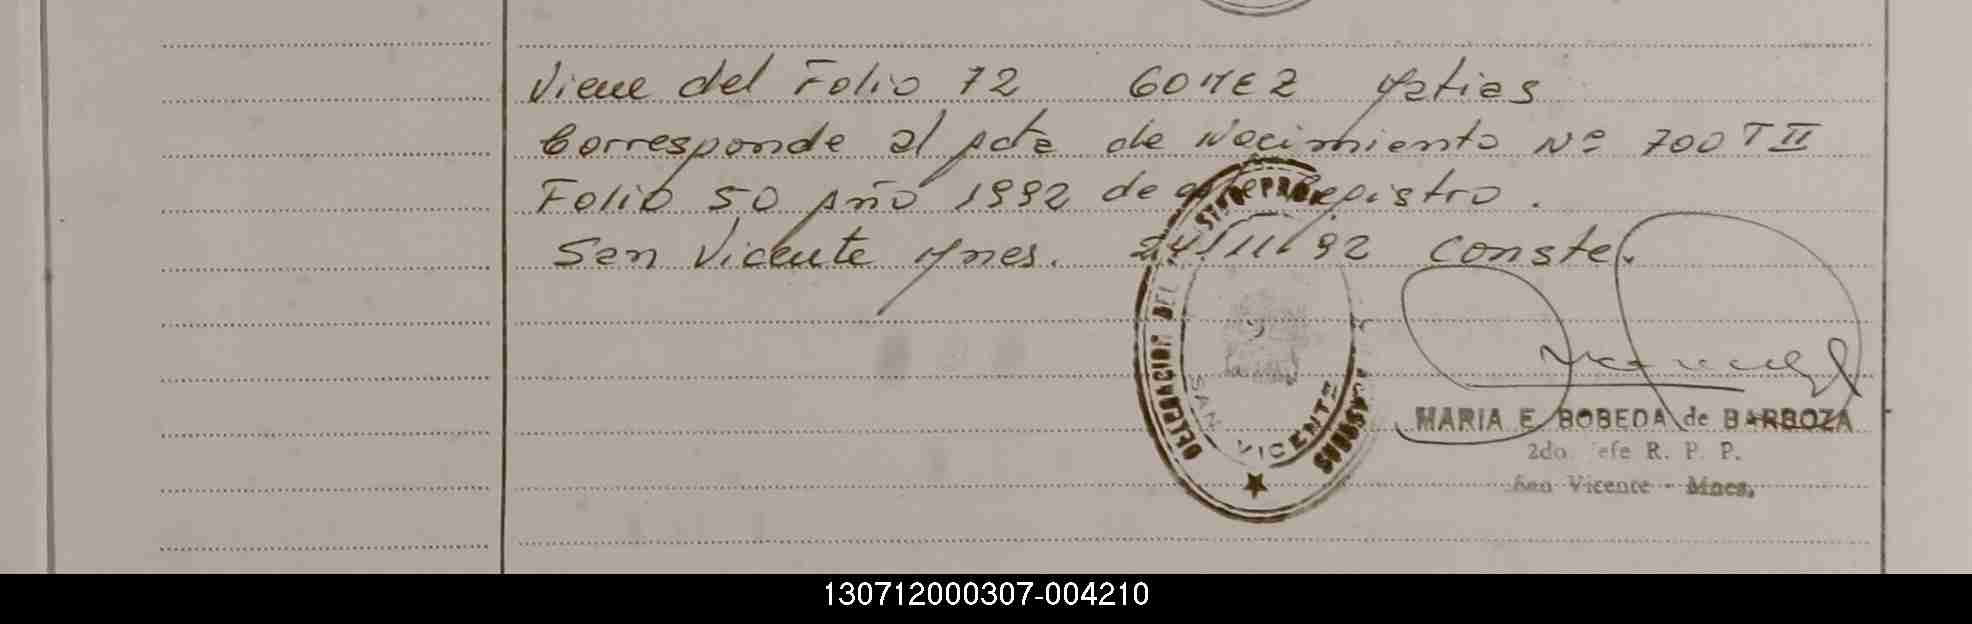 Viene del Folio 72 GOMEZ Matias
Corresponde al Acta de Nacimiento Nº 700 T II
Folio 50 Año 1992 de este Registro.
San Vicente Mnes. 24/11/92 Conste.
DELEGACION DEL
SAN VICENTE
MARIA E. BOBEDA de BARBOZA
2do. Jefe R. P. P.
San Vicente - Mnes.
130712000307-004210